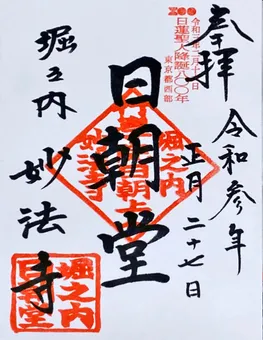 奉拝
令和参年
正月二十七日
日蓮聖人降誕八〇〇年
東京都西部
日朝堂
堀之内
日朝上
妙法寺
堀之内
妙法寺
堀之内
日朝堂